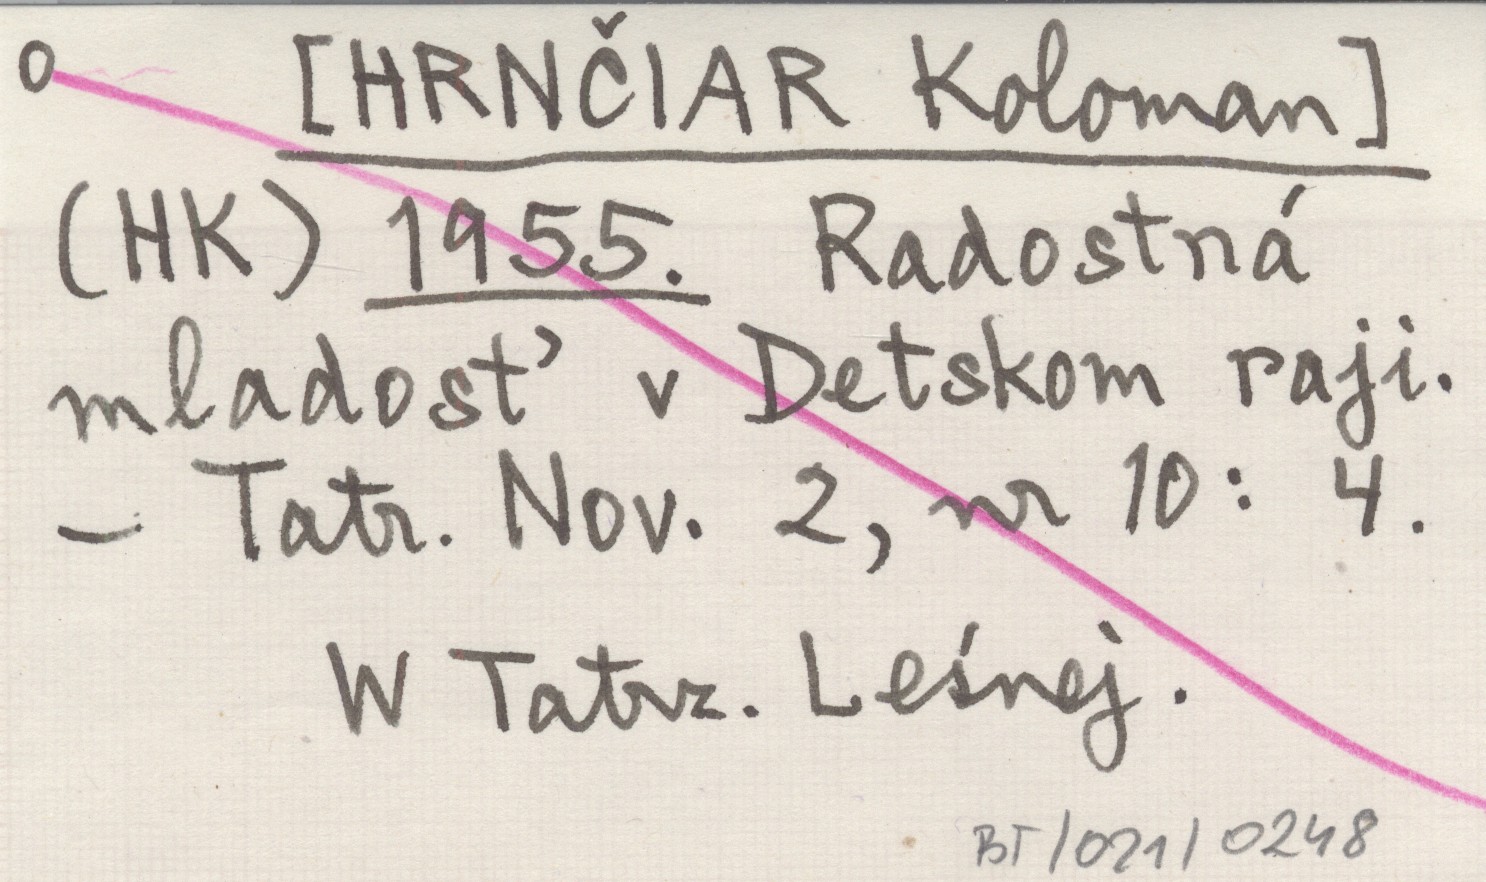 O [HRNČIAR Koloman]
(HK) 1955. Radostná
mladosť v Detskom raji.
– Tatr. Nov. 2, nr 10: 4.
W Tatrz. Leśnej.
BT/021/0248